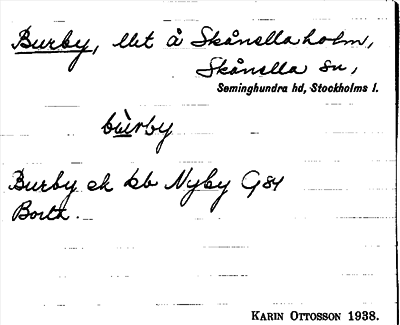 Burby, llht å Skånellaholm,
Skånella sn,
Seminghundra hd, Stockholms l.
bùrby
Burby ek kb Nyby G84
Borth.
KARIN OTTOSSON 1938.